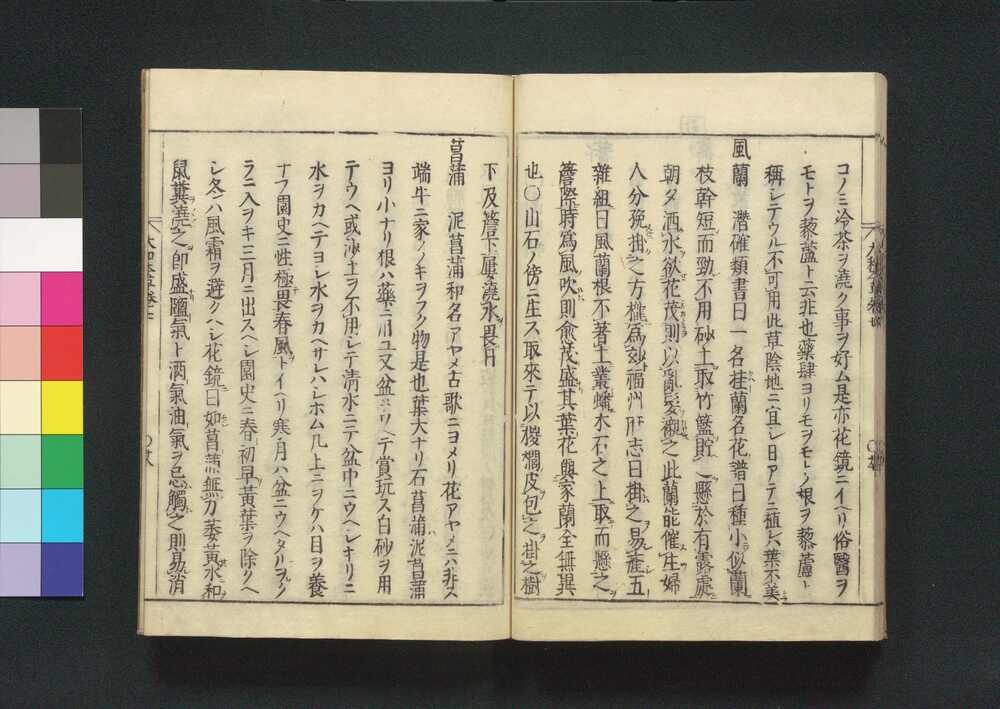 コノミ冷茶ヲ澆ク事ヲ好ム是亦花鏡ニイヘリ俗醫ヲ
モトヲ藜蘆ト云非也藥肆ヨリモヲモトノ根ヲ藜蘆ト
稱シテウル不可用此草陰地ニ宜シ日アテニ植レハ葉不美
風蘭 潛確類書曰一名桂蘭名花譜曰種小似蘭
枝幹短而勁不用砂土取竹籃貯之懸於有露處
朝夕洒水欲花茂則以亂髪襯之此蘭能催生婦
人分娩掛之方櫳為効福州府志曰掛之易產五
雜組曰風蘭根不著土叢蟠木石之上取而懸之
簷際時為風吹則愈茂盛其葉花與家蘭全無異
也〇山石ノ傍ニ生ス取來テ以椶櫚皮包之掛之樹
下及簷下屢澆水畏日
菖蒲 泥菖蒲和名アヤメ古歌ニヨメリ花アヤメニハ非ス
端午ニ家ノノキヲフク物是也葉大ナリ石菖蒲泥菖蒲
ヨリ小ナリ根ハ藥ニ用ユ又盆ニウヘテ賞玩ス白砂ヲ用
テウヘ或沙土ヲ不用シテ清水ニテ盆中ニウヘシキリニ
水ヲカヘテヨシ水ヲカヘサレハシホム几上ニヲケハ目ヲ養
ナフ園史ニ性極畏春風トイヘリ寒月ハ盆ニウヘタルヲムシ
ラニ入ヲキ三月ニ出スヘシ園史ニ春初早黃葉ヲ除クヘ
シ冬ハ風霜ヲ避クヘシ花鏡曰如菖蒲無力萎黃水和
鼠糞澆之即盛鹽氣ト洒氣油氣ヲ忌觸之則易消